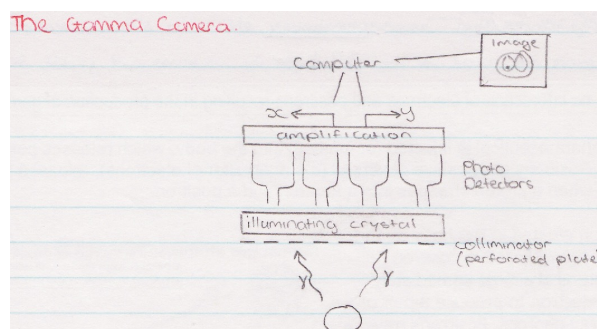 The Gamma Camera.
Image
Computer
x y
amplification
Photo
Detectors
illuminating crystal
colliminator
(perforated plate
γ γ